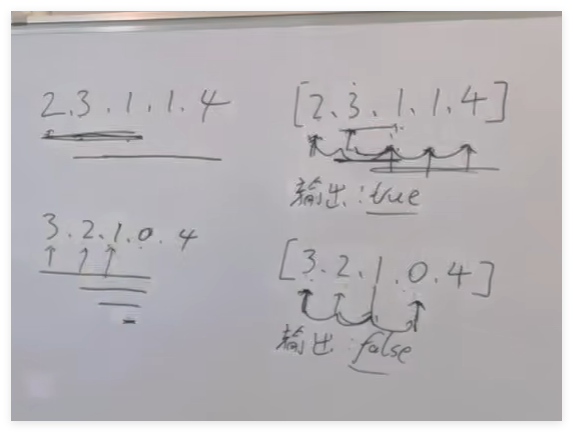 2.3.1.1.4
[2.3.1.1.4]
输出:true
3.2.1.0.4
[3.2.1.0.4]
输出:false